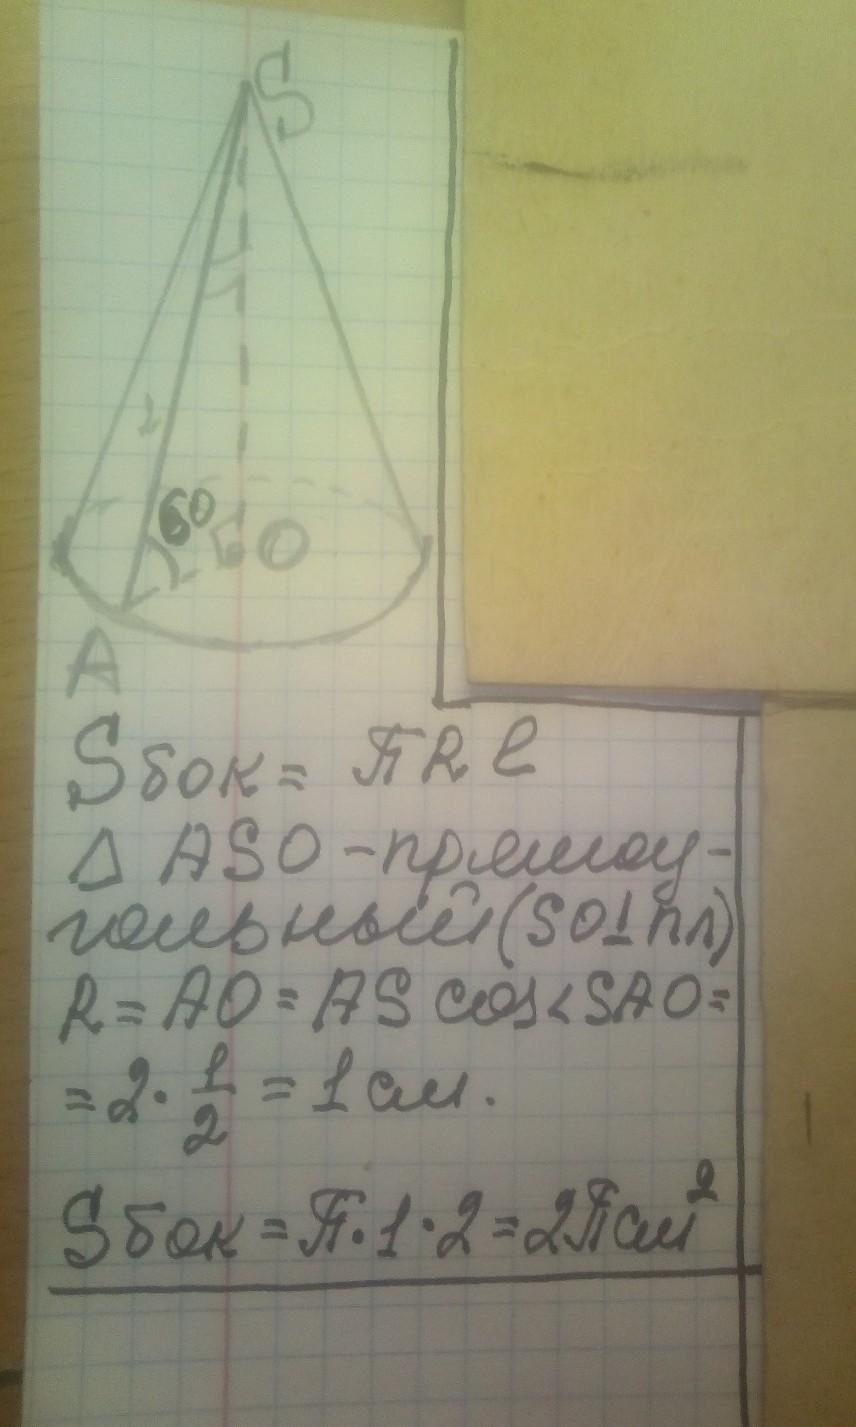 S
2
60
O
A
Sбок = πRl
Δ ASO - прямоу-
гольный (SO⊥пл)
R = AO = AS cos<SAO=
= 2 · 1/2 = 1 см.
Sбок = π·1·2 = 2πсм²